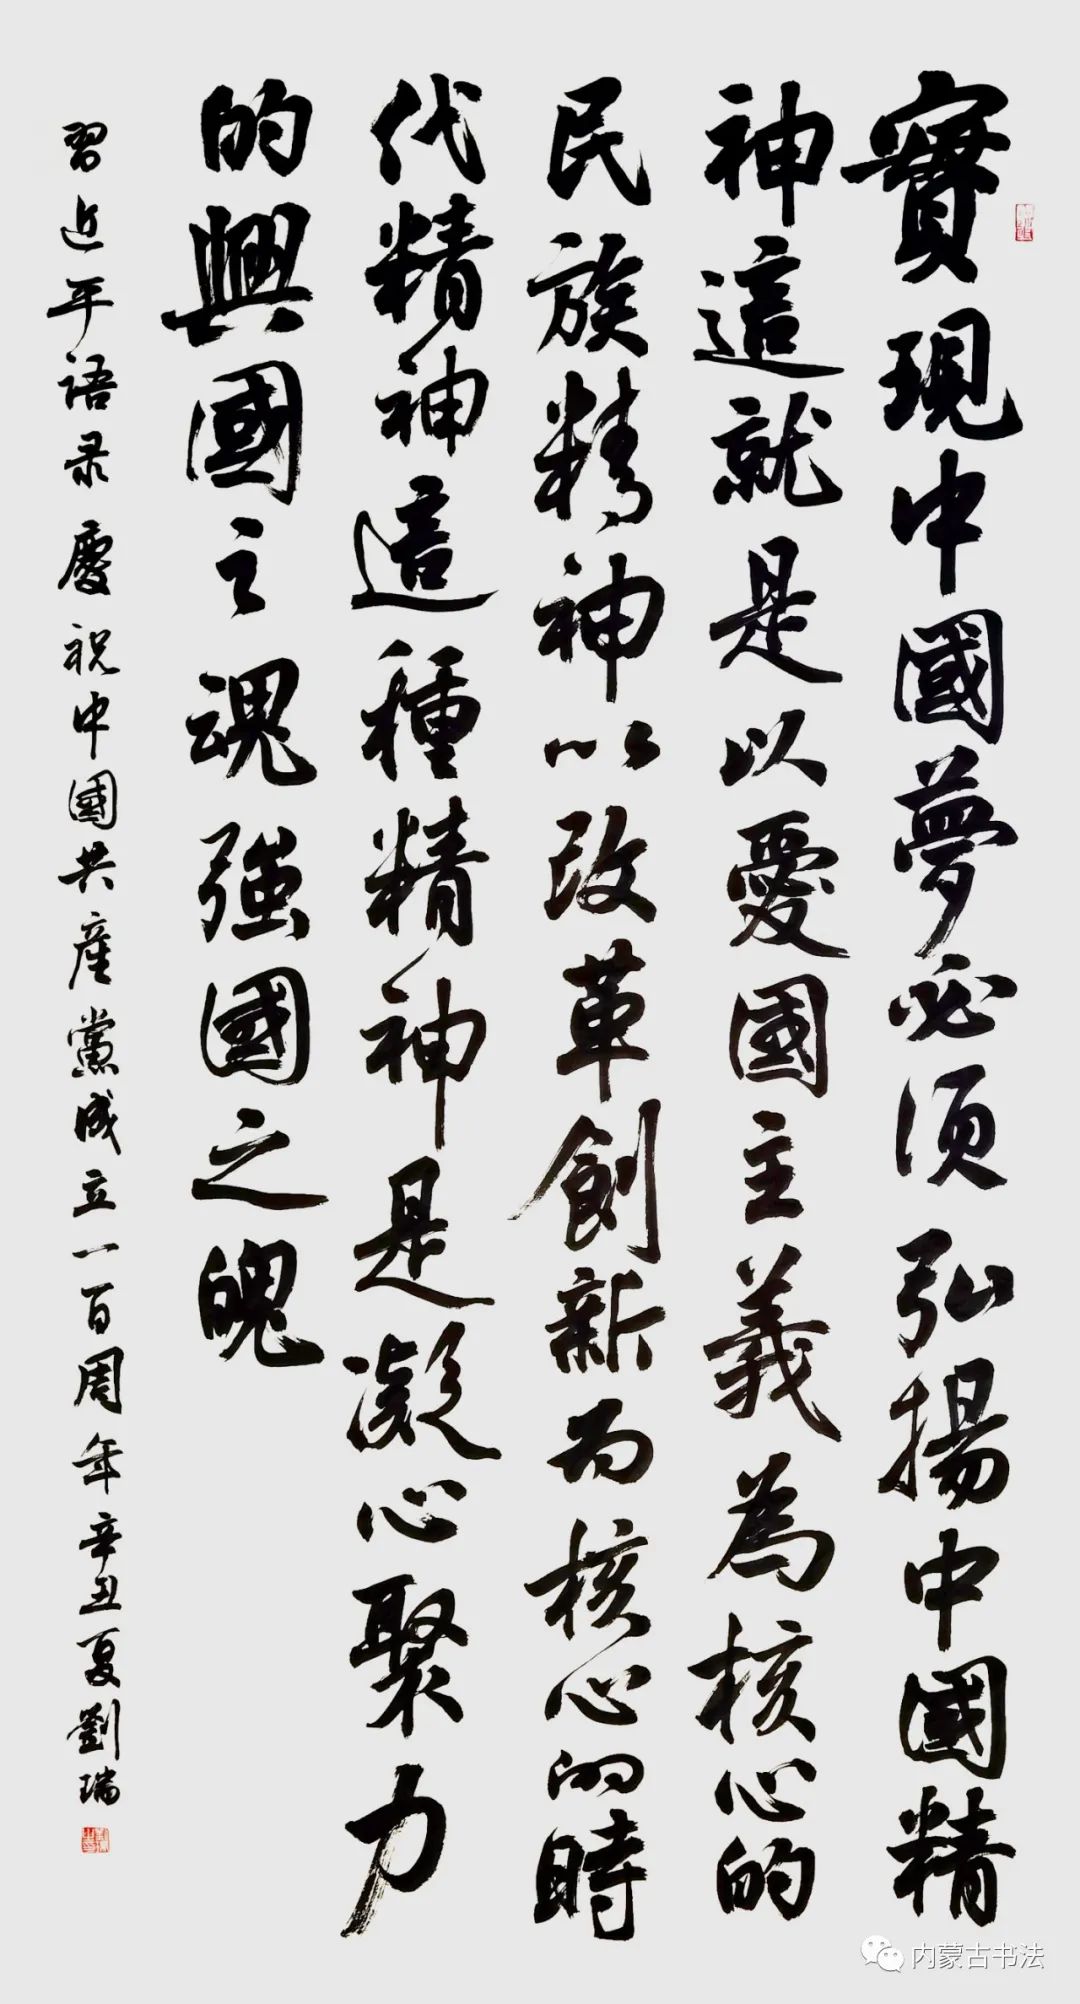 實現中國夢必须弘揚中國精
神這就是以愛國主義為核心的
民族精神以改革創新为核心的時
代精神這種精神是凝心聚力
的興國之魂強國之魄
習近平语录慶祝中國共產黨成立一百周年辛丑夏劉瑞
内蒙古书法